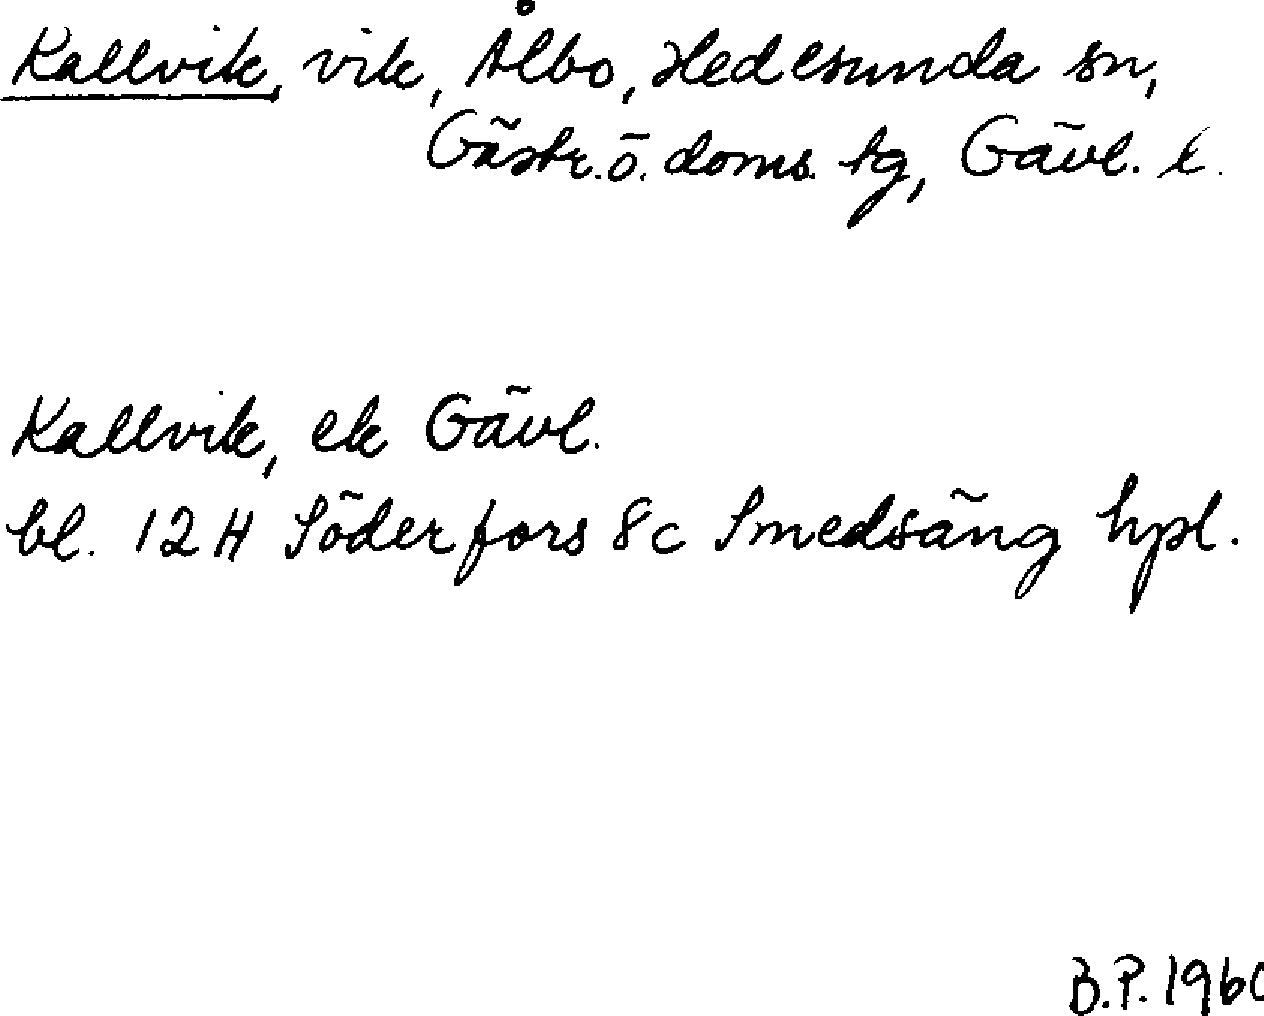 Kallvik, vik, Ålbo, Hedesunda sn,
Gästr. ö. doms. tg, Gävl. l.
Kallvik, ek Gävl.
bl. 12H Söderfors 8c Smedsäng hpl.
B.P.